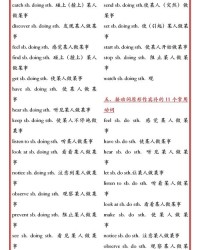 catch sb. doing sth. 碰上（撞上）某人
做某事
discover sb. doing sth. 发现某人做某
事
feel sb. doing sth. 感觉某人做某事
find sb. doing sth. 碰上（撞上）某人
做某事
get sb. doing sth. 使某人做某事
have sb. doing sth. 使某人做某
事
hear sb. doing sth. 听见某人做某事
keep sb. doing sth. 使某人不停地做
某事
listen to sb. doing sth. 听某人做某事
look at sb. doing sth. 看着某人做某
事
notice sb. doing sth. 注意到某人做某
事
observe sb. doing sth. 观察某人做某
事
prevent sb. doing sth. 阻止某人做某
事
see sb. doing sth. 看见某人做某
事
send sb. doing sth. 使某人（突然）做
某事
set sb. doing sth. 使（引起）某人做某
事
start sb. doing sth. 使某人开始做某事
stop sb. doing sth. 阻止某人做某
事
watch sb. doing sth. 观
五、接动词原形作宾补的 11 个常用
动词
feel sb. do sth. 感觉某人做某事
have sb. do sth. 使某人做某事
hear sb. do sth. 听见某人做某
事
let sb. do sth. 让某人做某事
listen to sb. do sth. 听着某人做某
事
look at sb. do sth. 看着某人做某事
make sb. do sth. 使某人做某事
notice sb. do sth. 注意某人做某
事
observe sb. do sth. 观察某人做某
事